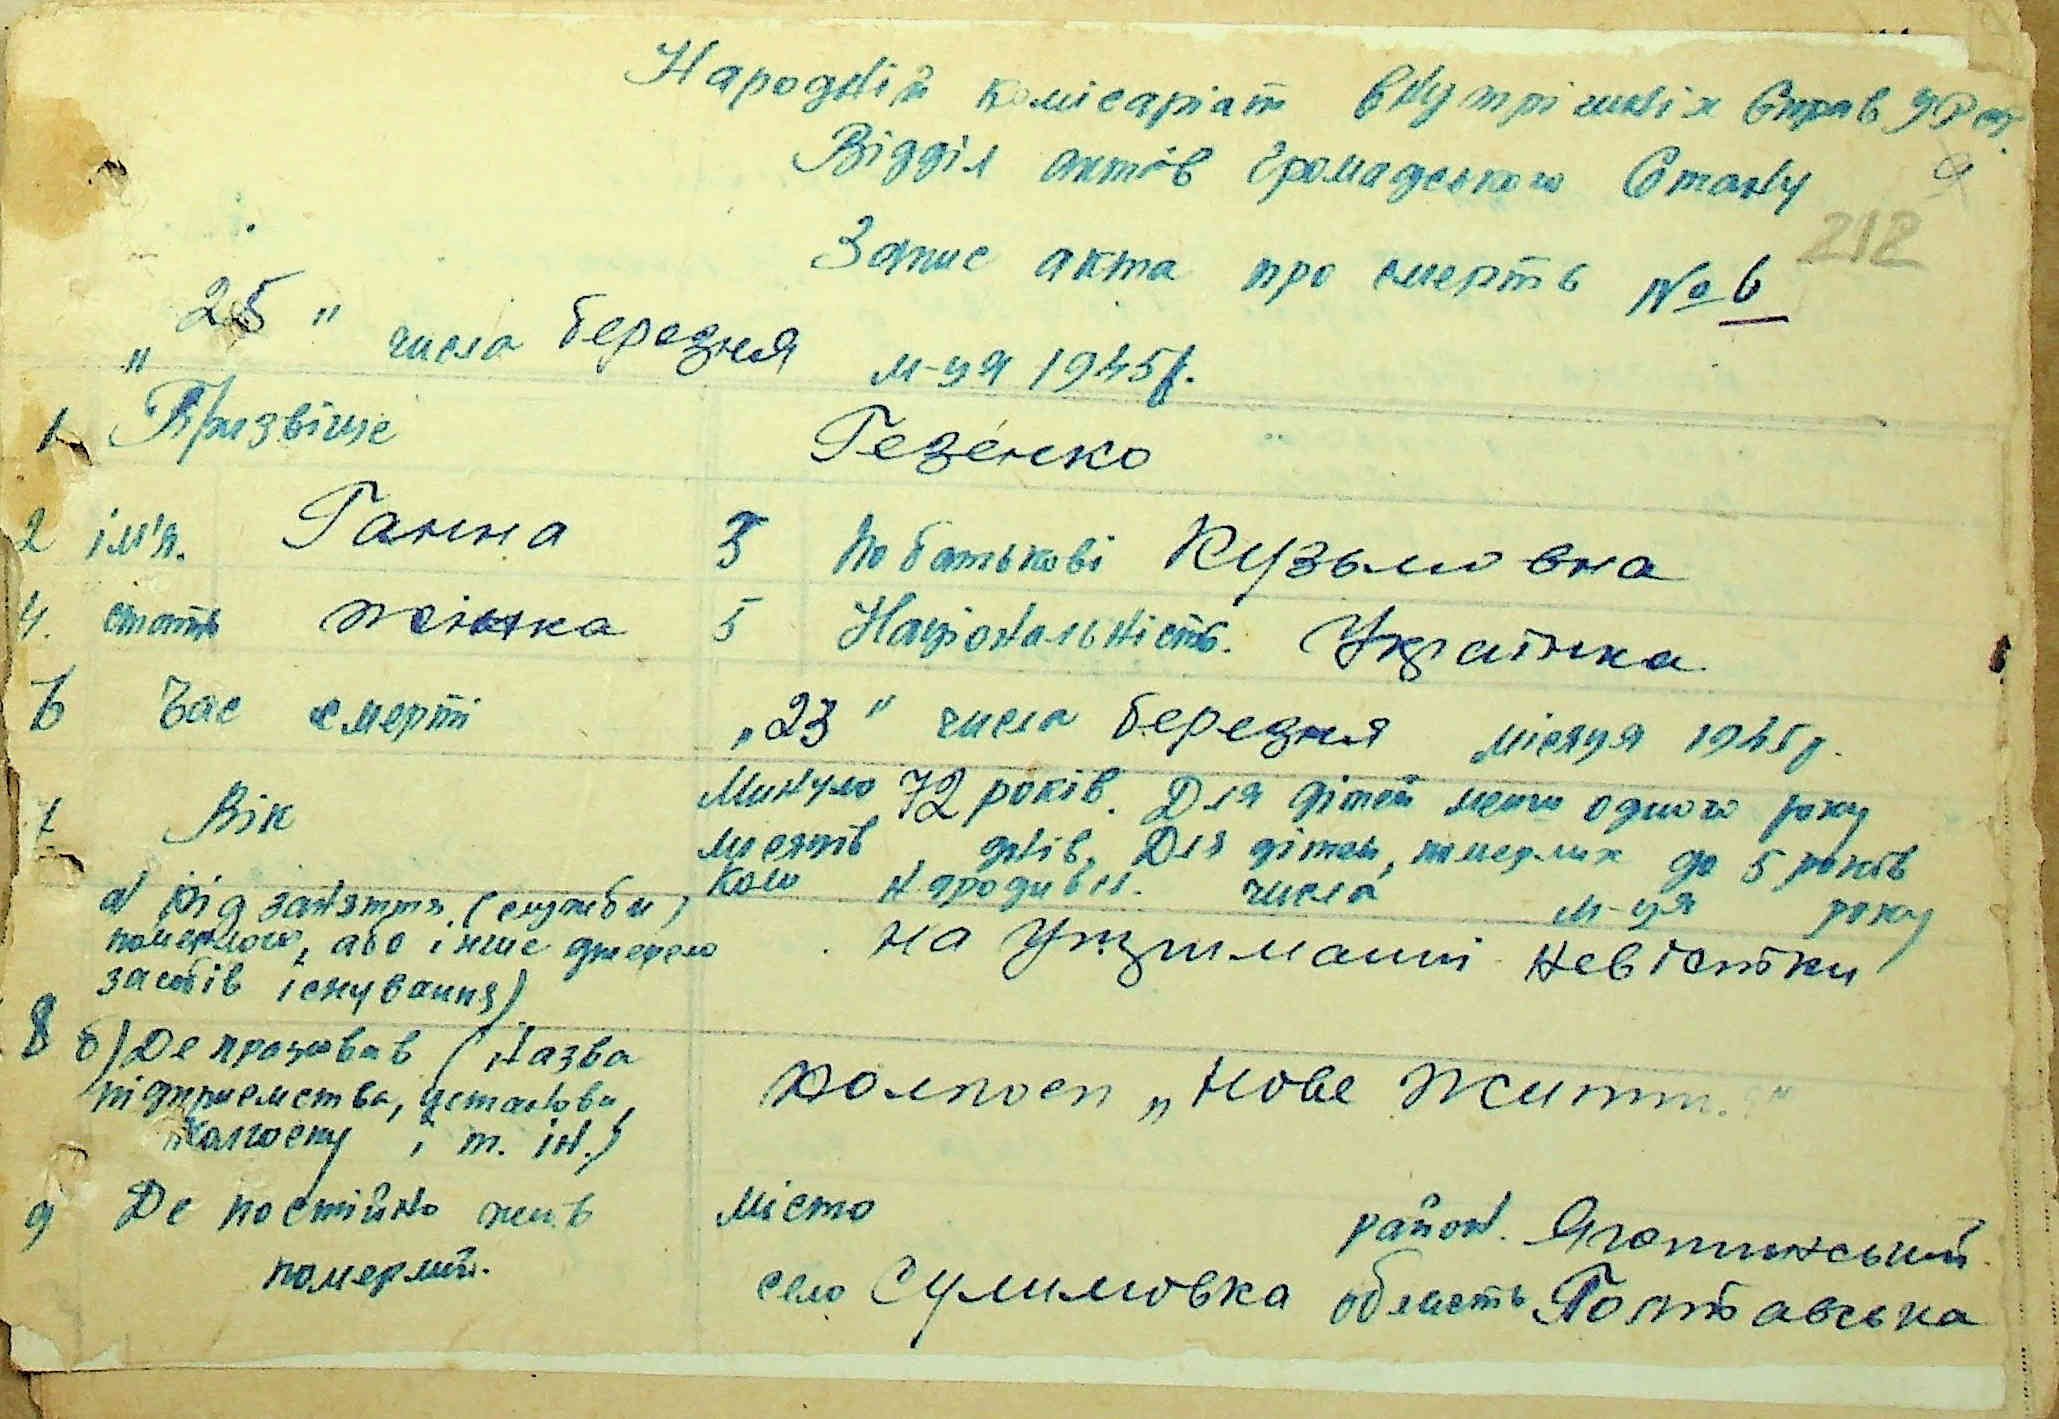 Народній комісаріат внутрішніх справ УРСР.
Відділ актів громадського стану
212
Запис акта про смерть № 6
„25" числа березня м-ця 1945р.
1 Призвіще Гезенко
2 ім'я. Ганна 3 По батькові Кузьмовна
4. стать жінка 5 Національність. Українка
6 Час смерті „23" числа березня місяця 1945р.
7 Вік Минуло 72 років. Для дітей менш одного року
місяців днів. Для дітей, померлих до 5 років
коли народився. числа м-ця року
а) Рід заняття (служби) на утриманні невістки
померлого, або інше джерело
засобів існування)
8 б) Де працював (Назва колгосп „Нове Життя"
підприємства, установи,
колгоспу і т. ін.)
9 Де постійно жив місто район. Яготинський
померлий. село Сулимовка область Полтавська